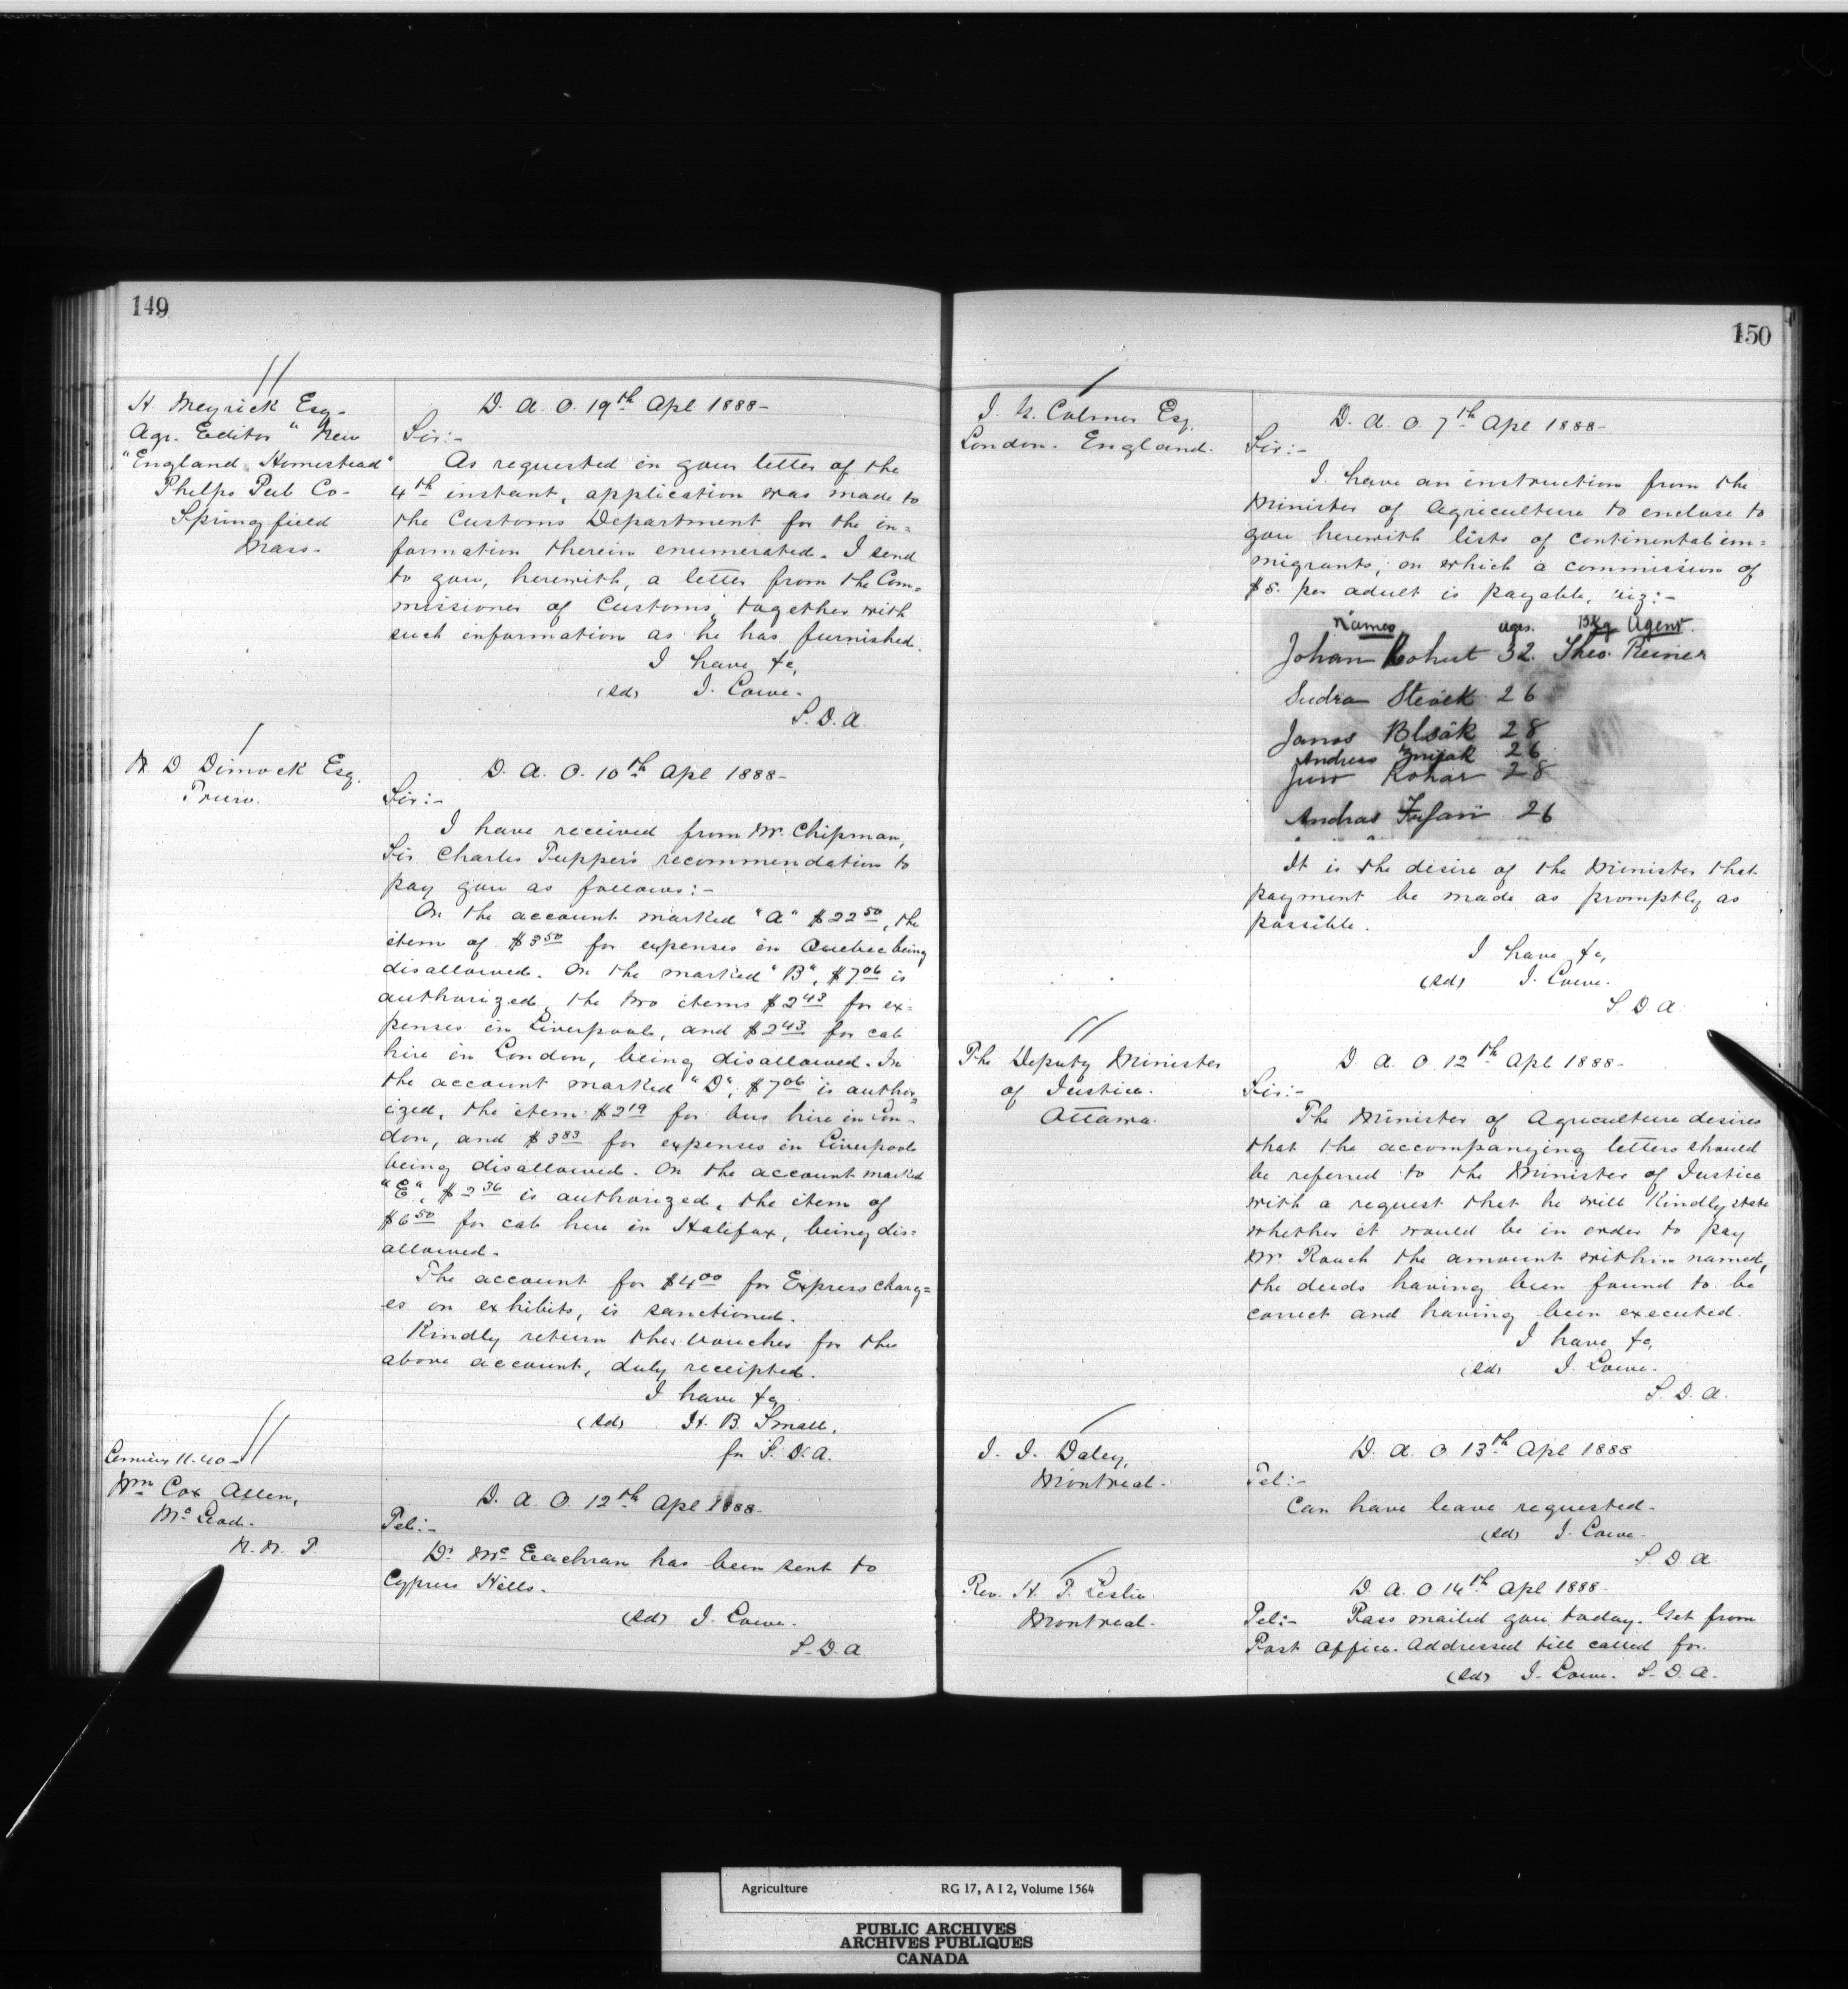 149
H. Meyrick Esq-
Agr. Editor "New
"England Homestead"
Phelps Pub Co-
Springfield
Mass-
D. A. O. 19th Apl 1888-
Sir:-
As requested in your letter of the
4th instant, application was made to
the Customs Department for the in=
formation therein enumerated. I send
to you, herewith, a letter from the Com=
missioner of Customs, together with
such information as he has furnished.
I have &c,
(Sd) J. Lowe.
S.D.A.
N D Dimock Esq.
Truro.
D. A. O. 10th Apl 1888-
Sir:-
I have received from Mr. Chipman,
Sir Charles Tupper's recommendation to
pay you as follows:-
On the account marked "A" $22 50, the
item of $3 50 for expenses in Quebec being
disallowed. On the marked "B", $7 06 is
authorized, the two items $2 43 for ex=
penses in Liverpool, and $2 43 for cab
hire in London, being disallowed. In
the account marked "D", $7 06 is author=
ized, the item $2 19 for bus hire in Lon-
don, and $3 83 for expenses in Liverpool
being disallowed. On the account marked
"E", $2 36 is authorized, the item of
$6 50 for cab hire in Halifax, being dis=
allowed.
The account for $4 00 for Express charg=
es on exhibits, is sanctioned.
Kindly return the voucher for the
above account, duly receipted.
I have &c,
(Sd) H. B. Small,
for S. D. A.
11.40-
Wm Cox Allen,
Mc Leod.
N. W. T.
D. A. O. 12th Apl 1888-
Tel:-
Dr Mc Eachran has been sent to
Cypress Hills.
(Sd) J. Lowe.
S.D.A
150
J. G. Colmer Esq.
London. England.
D. A. O. 7th Apl 1888-
Sir:-
I have an instruction from the
Minister of Agriculture to enclose to
you herewith lists of continental im=
migrants, on which a commission of
$5. per adult is payable, viz:-
Names ages. Bkg Agent.
Johan Kohut 32. Theo. Reiner
Stevek 26
Janos Blsák 28
Andreas 26
Kohar 28
Andras 26
It is the desire of the Minister that
payment be made as promptly as
possible.
I have &c,
(Sd) J. Lowe.
S. D. A.
The Deputy Minister
of Justice.
Ottawa.
D A. O 12th Apl 1888-
Sir:-
The Minister of Agriculture desires
that the accompanying letters should
be referred to the Minister of Justice
with a request that he will kindly state
whether it would be in order to pay
Mr. Roach the amount within named,
the deeds having been found to be
correct and having been executed.
I have &c,
(Sd) J. Lowe.
S. D. A.
J. J. Daley,
Montreal.
D. A. O 13th Apl 1888
Tel:-
Can have leave requested.
(Sd) J. Lowe-
S. D. A.
Rev. H. T. Leslie
Montreal.
D. A. O. 14th Apl 1888-
Tel:- Pass mailed you today. Get from
Post Office. Addressed till called for.
(Sd) J. Lowe. S. D. A.
Agriculture RG 17, A I 2, Volume 1564
PUBLIC ARCHIVES
ARCHIVES PUBLIQUES
CANADA